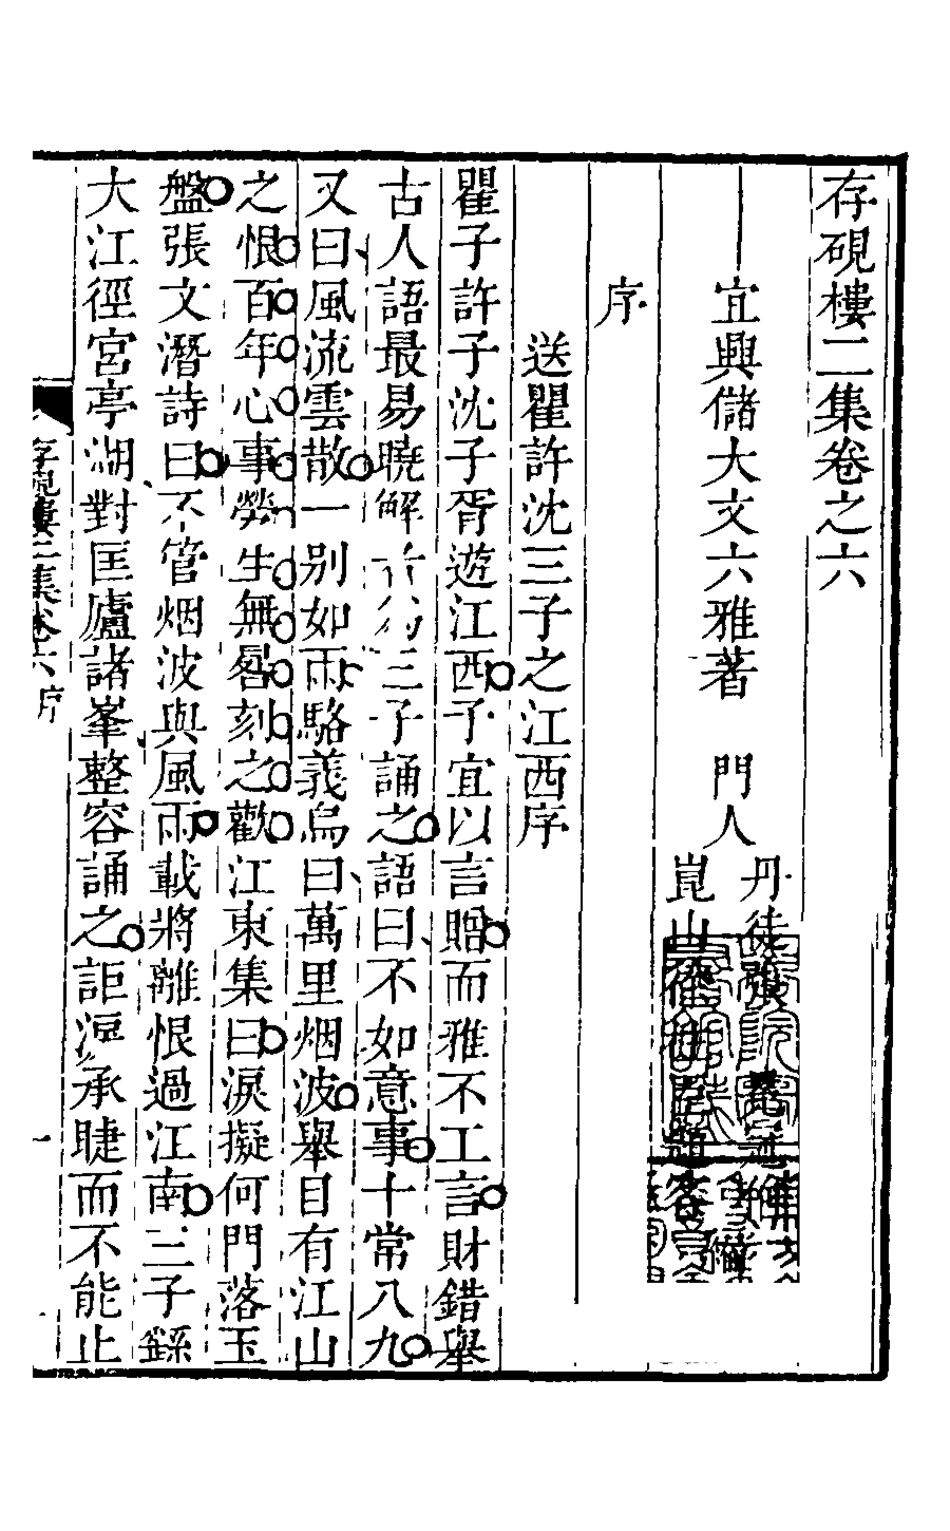 存硯樓二集卷之六
宜興儲大文六雅著 門人
丹徒張
崑山
序
送瞿許沈三子之江西序
瞿子許子沈子胥遊江西予宜以言贈而雅不工言財錯舉
古人語最易曉解者為三子誦之語曰不如意事十常八九
又曰風流雲散一别如雨駱義烏曰萬里烟波舉目有江山
之恨百年心事勞生無晷刻之歡江東集曰淚擬何門落玉
盤張文潛詩曰不管烟波與風雨載將離恨過江南三子繇
大江徑宮亭湖對匡廬諸峯整容誦之詎淚承睫而不能止
存硯樓二集卷六 序 一